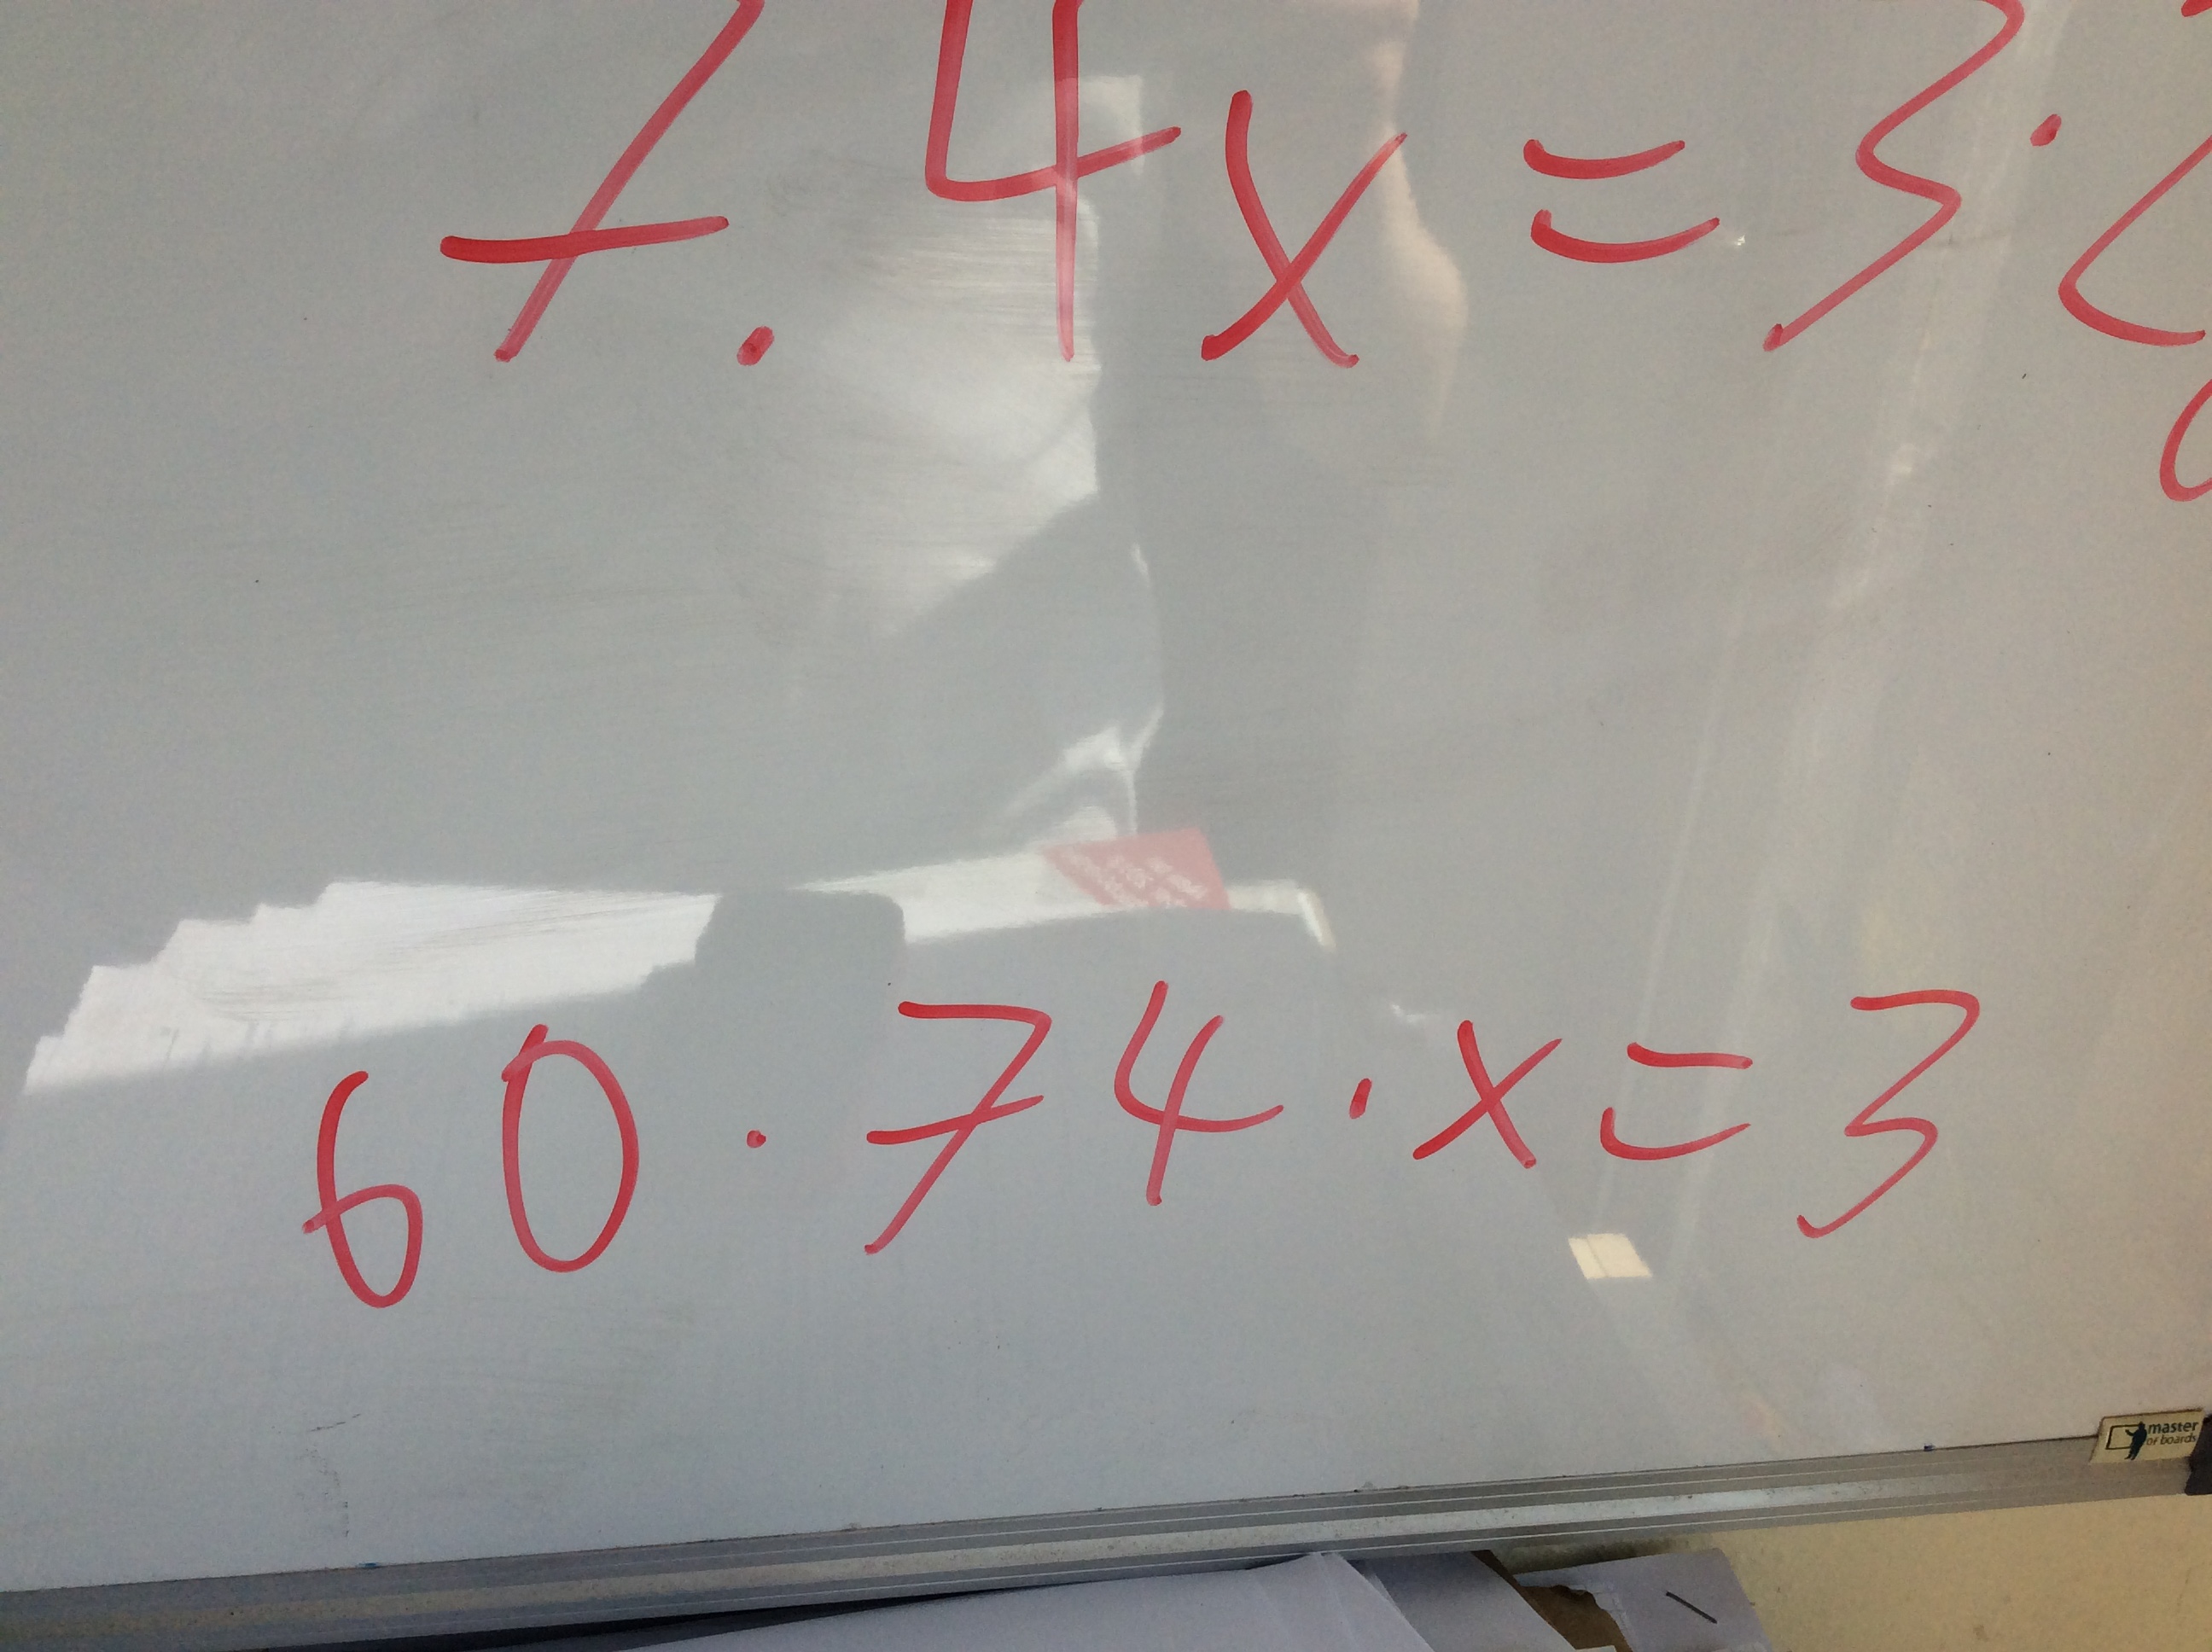 7.4x = 3.
60 · 74 · x = 3
master
of boards